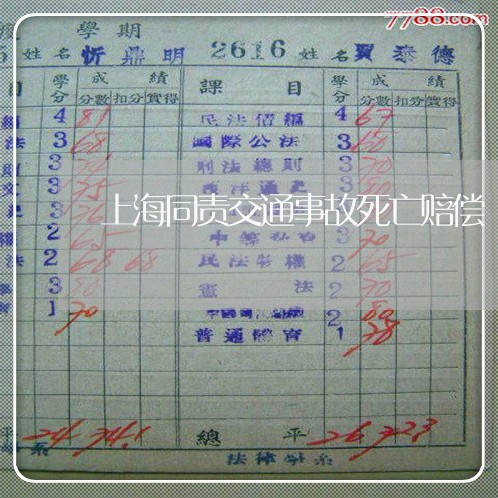 7788.com
學期
姓名 忻鼎明 2616 姓名 賈泰德
目 學分 成績 課目 學分 成績
分數 扣分 實得 分數 扣分 實得
4 81 民法債編 4 67
法 3 68 國際公法 3 60
3 刑法總則 3 70
3 75 3 80
上海同责交通事故死亡赔偿
3 76
2 65 3 70
法 2 68 68 民法物權 2 65
3 80 憲法 2 70
1 70 2 80
普通體育 1 78
平 24 74.1 總平 26 72.3
系 法律學系